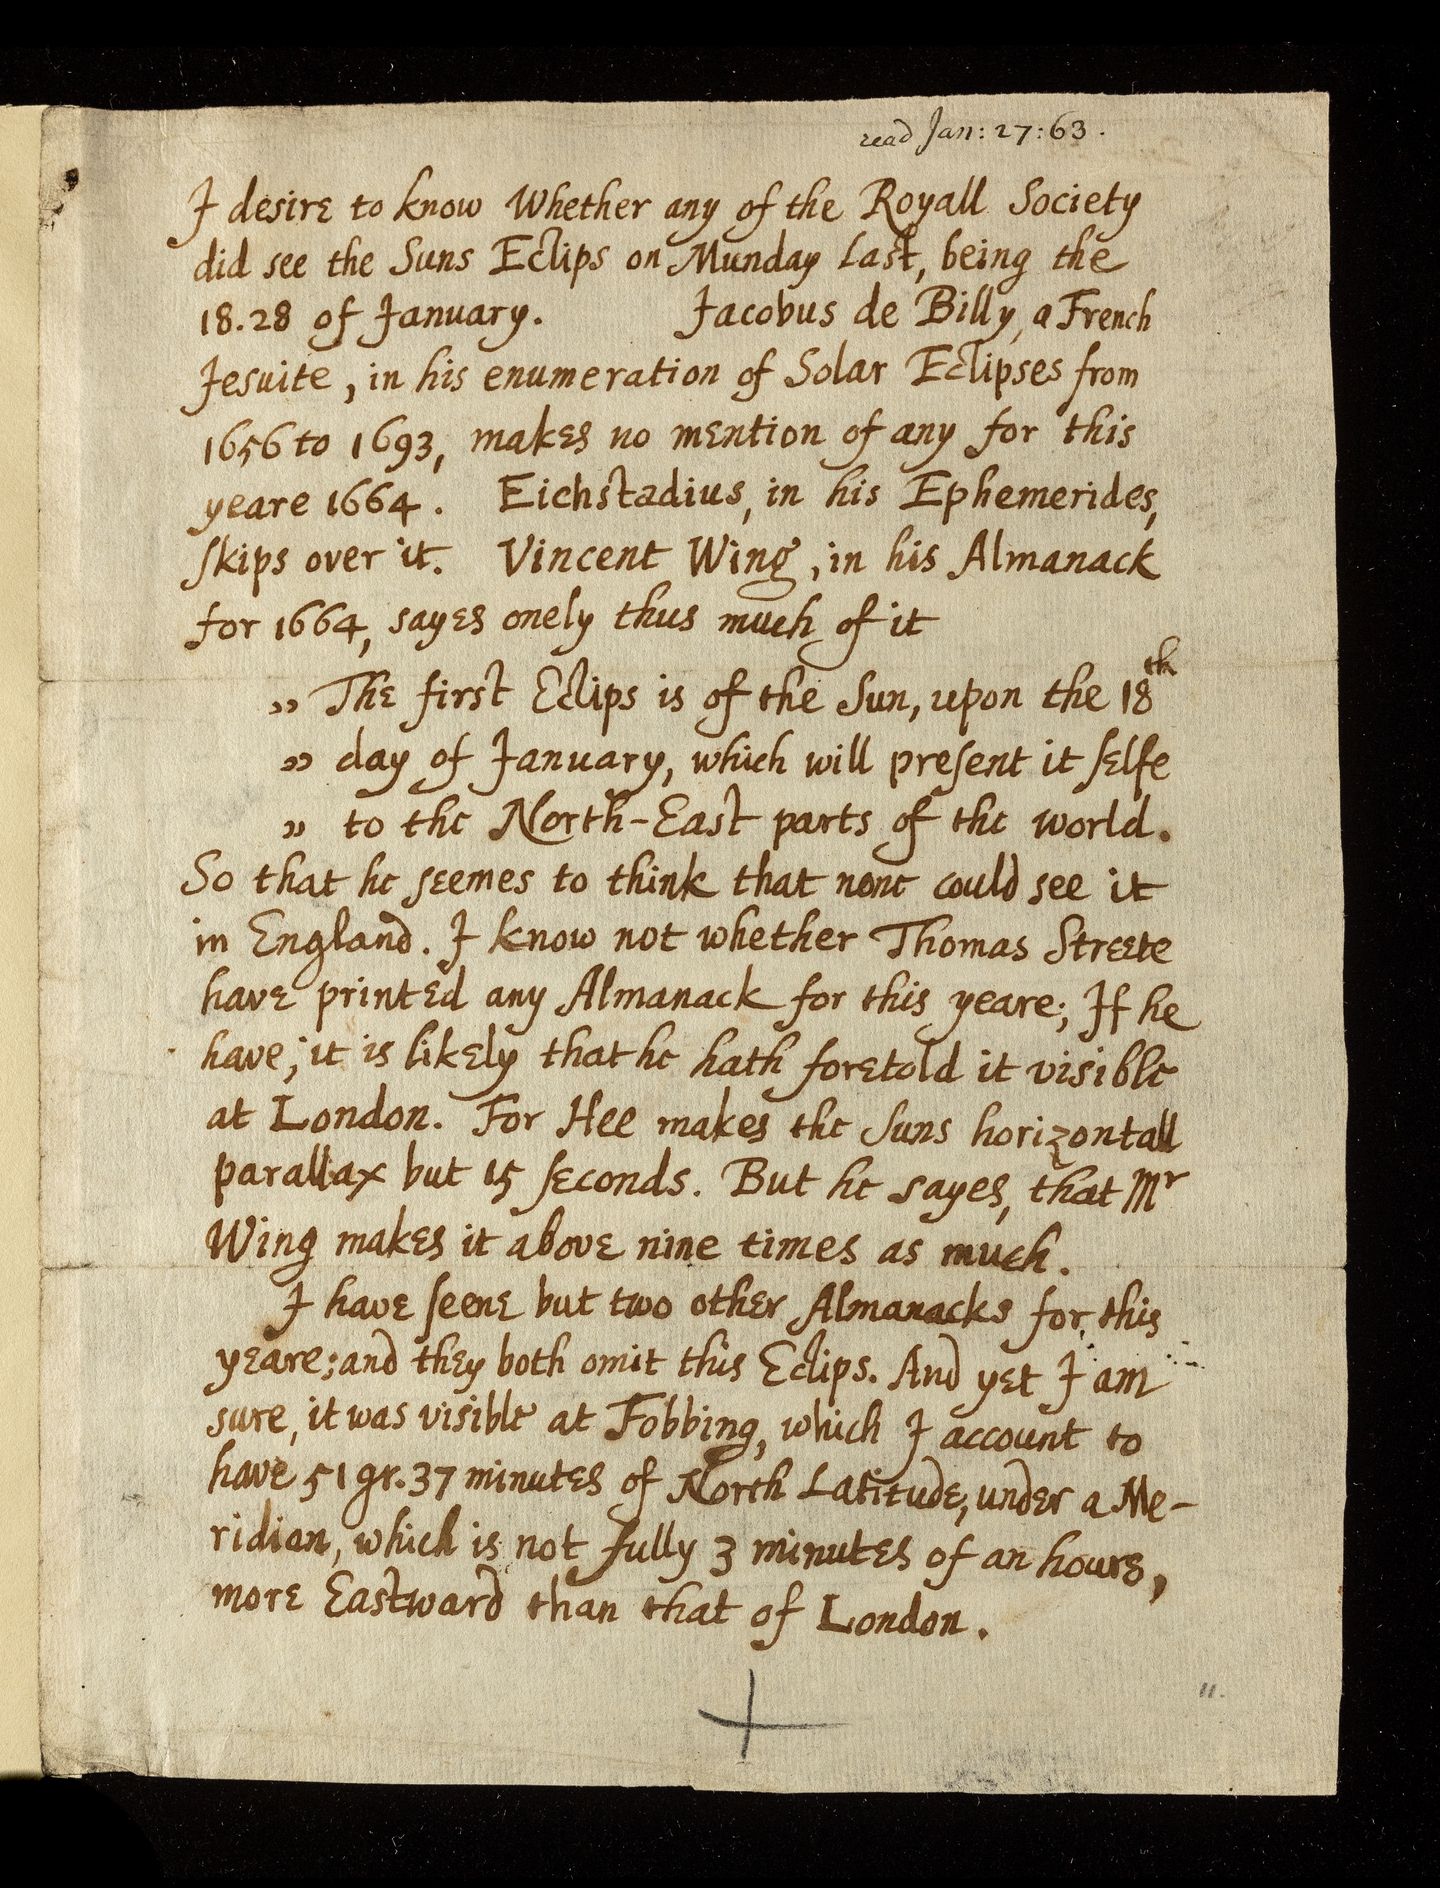 read Jan: 27: 63.
I desire to know Whether any of the Royall Society
did see the Suns Eclips on Munday last, being the
18.28 of January. Jacobus de Billy, a French
Jesuite, in his enumeration of Solar Eclipses from
1656 to 1693, makes no mention of any for this
yeare 1664. Eichstadius, in his Ephemerides,
skips over it. Vincent Wing, in his Almanack
for 1664, sayes onely thus much of it
„ The first Eclips is of the Sun, upon the 18th
„ day of January, which will present it selfe
„ to the North-East parts of the world.
So that he seemes to think that none could see it
in England. I know not whether Thomas Streete
have printed any Almanack for this yeare; If he
have; it is likely that he hath foretold it visible
at London. For Hee makes the Suns horizontall
parallax but 15 seconds. But he sayes, that Mr
Wing makes it above nine times as much.
I have seene but two other Almanacks for this
yeare; and they both omit this Eclips. And yet I am
sure, it was visible at Fobbing, which I account to
have 51 gr. 37 minutes of North Latitude, under a Me-
ridian, which is not fully 3 minutes of an houre,
more Eastward than that of London.
11.